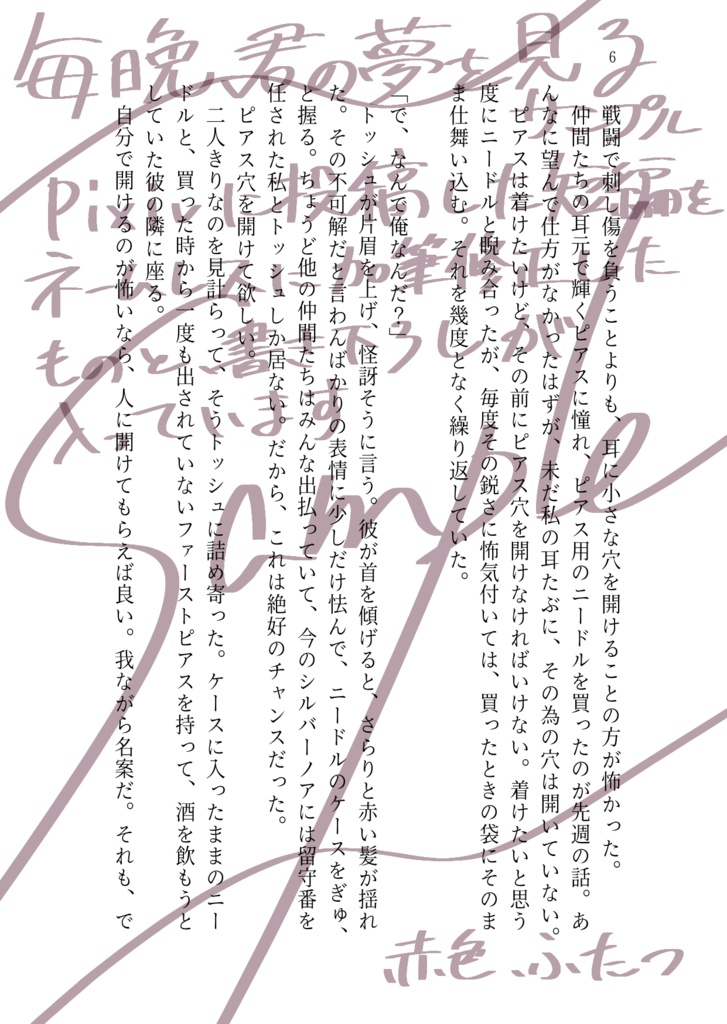 毎晩、君の夢を見る
サンプル
pixivに投稿した短編を
ネームレスに加筆修正した
ものと、書き下ろしが
入っています
Sample
赤色ふたつ
6
戦闘で刺し傷を負うことよりも、耳に小さな穴を開けることの方が怖かった。
仲間たちの耳元で輝くピアスに憧れ、ピアス用のニードルを買ったのが先週の話。あ
んなに望んで仕方がなかったはずが、未だ私の耳たぶに、その為の穴は開いていない。
ピアスは着けたいけど、その前にピアス穴を開けなければいけない。着けたいと思う
度にニードルと睨み合ったが、毎度その鋭さに怖気付いては、買ったときの袋にそのま
ま仕舞い込む。それを幾度となく繰り返していた。
「で、なんで俺なんだ?」
トッシュが片眉を上げ、怪訝そうに言う。彼が首を傾げると、さらりと赤い髪が揺れ
た。その不可解だと言わんばかりの表情に少しだけ怯んで、ニードルのケースをぎゅ、
と握る。ちょうど他の仲間たちはみんな出払っていて、今のシルバーノアには留守番を
任された私とトッシュしか居ない。だから、これは絶好のチャンスだった。
ピアス穴を開けて欲しい。
二人きりなのを見計らって、そうトッシュに詰め寄った。ケースに入ったままのニー
ドルと、買った時から一度も出されていないファーストピアスを持って、酒を飲もうと
していた彼の隣に座る。
自分で開けるのが怖いなら、人に開けてもらえば良い。我ながら名案だ。それも、で